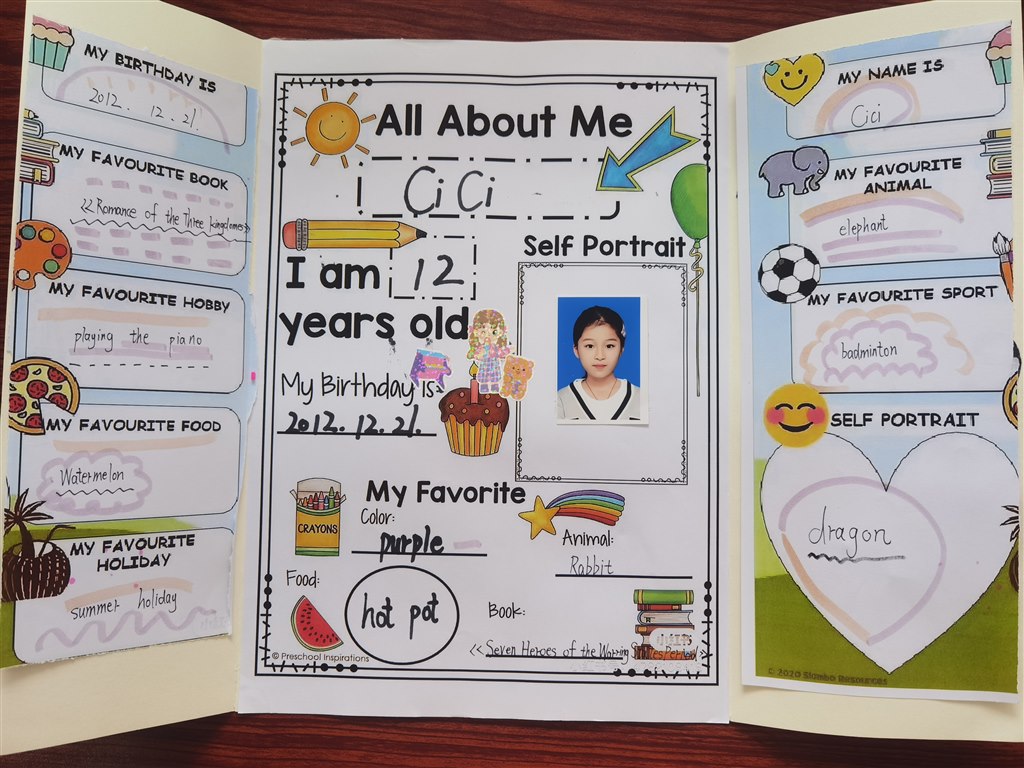 MY BIRTHDAY IS
2012. 12. 21.
MY FAVOURITE BOOK
<<Romance of the Three kingdoms>>
MY FAVOURITE HOBBY
playing the piano
MY FAVOURITE FOOD
Watermelon
MY FAVOURITE
HOLIDAY
summer holiday
All About Me
CiCi
I am 12
years old
Self Portrait
My Birthday is:
2012. 12. 21.
My Favorite
Color:
purple
CRAYONS
Animal:
Rabbit
Food:
hot pot
Book:
<<Seven Heroes of the Warring States Period>>
© Preschool Inspirations
MY NAME IS
Cici
MY FAVOURITE
ANIMAL
elephant
MY FAVOURITE SPORT
badminton
SELF PORTRAIT
dragon
© 2020 Slambo Resources